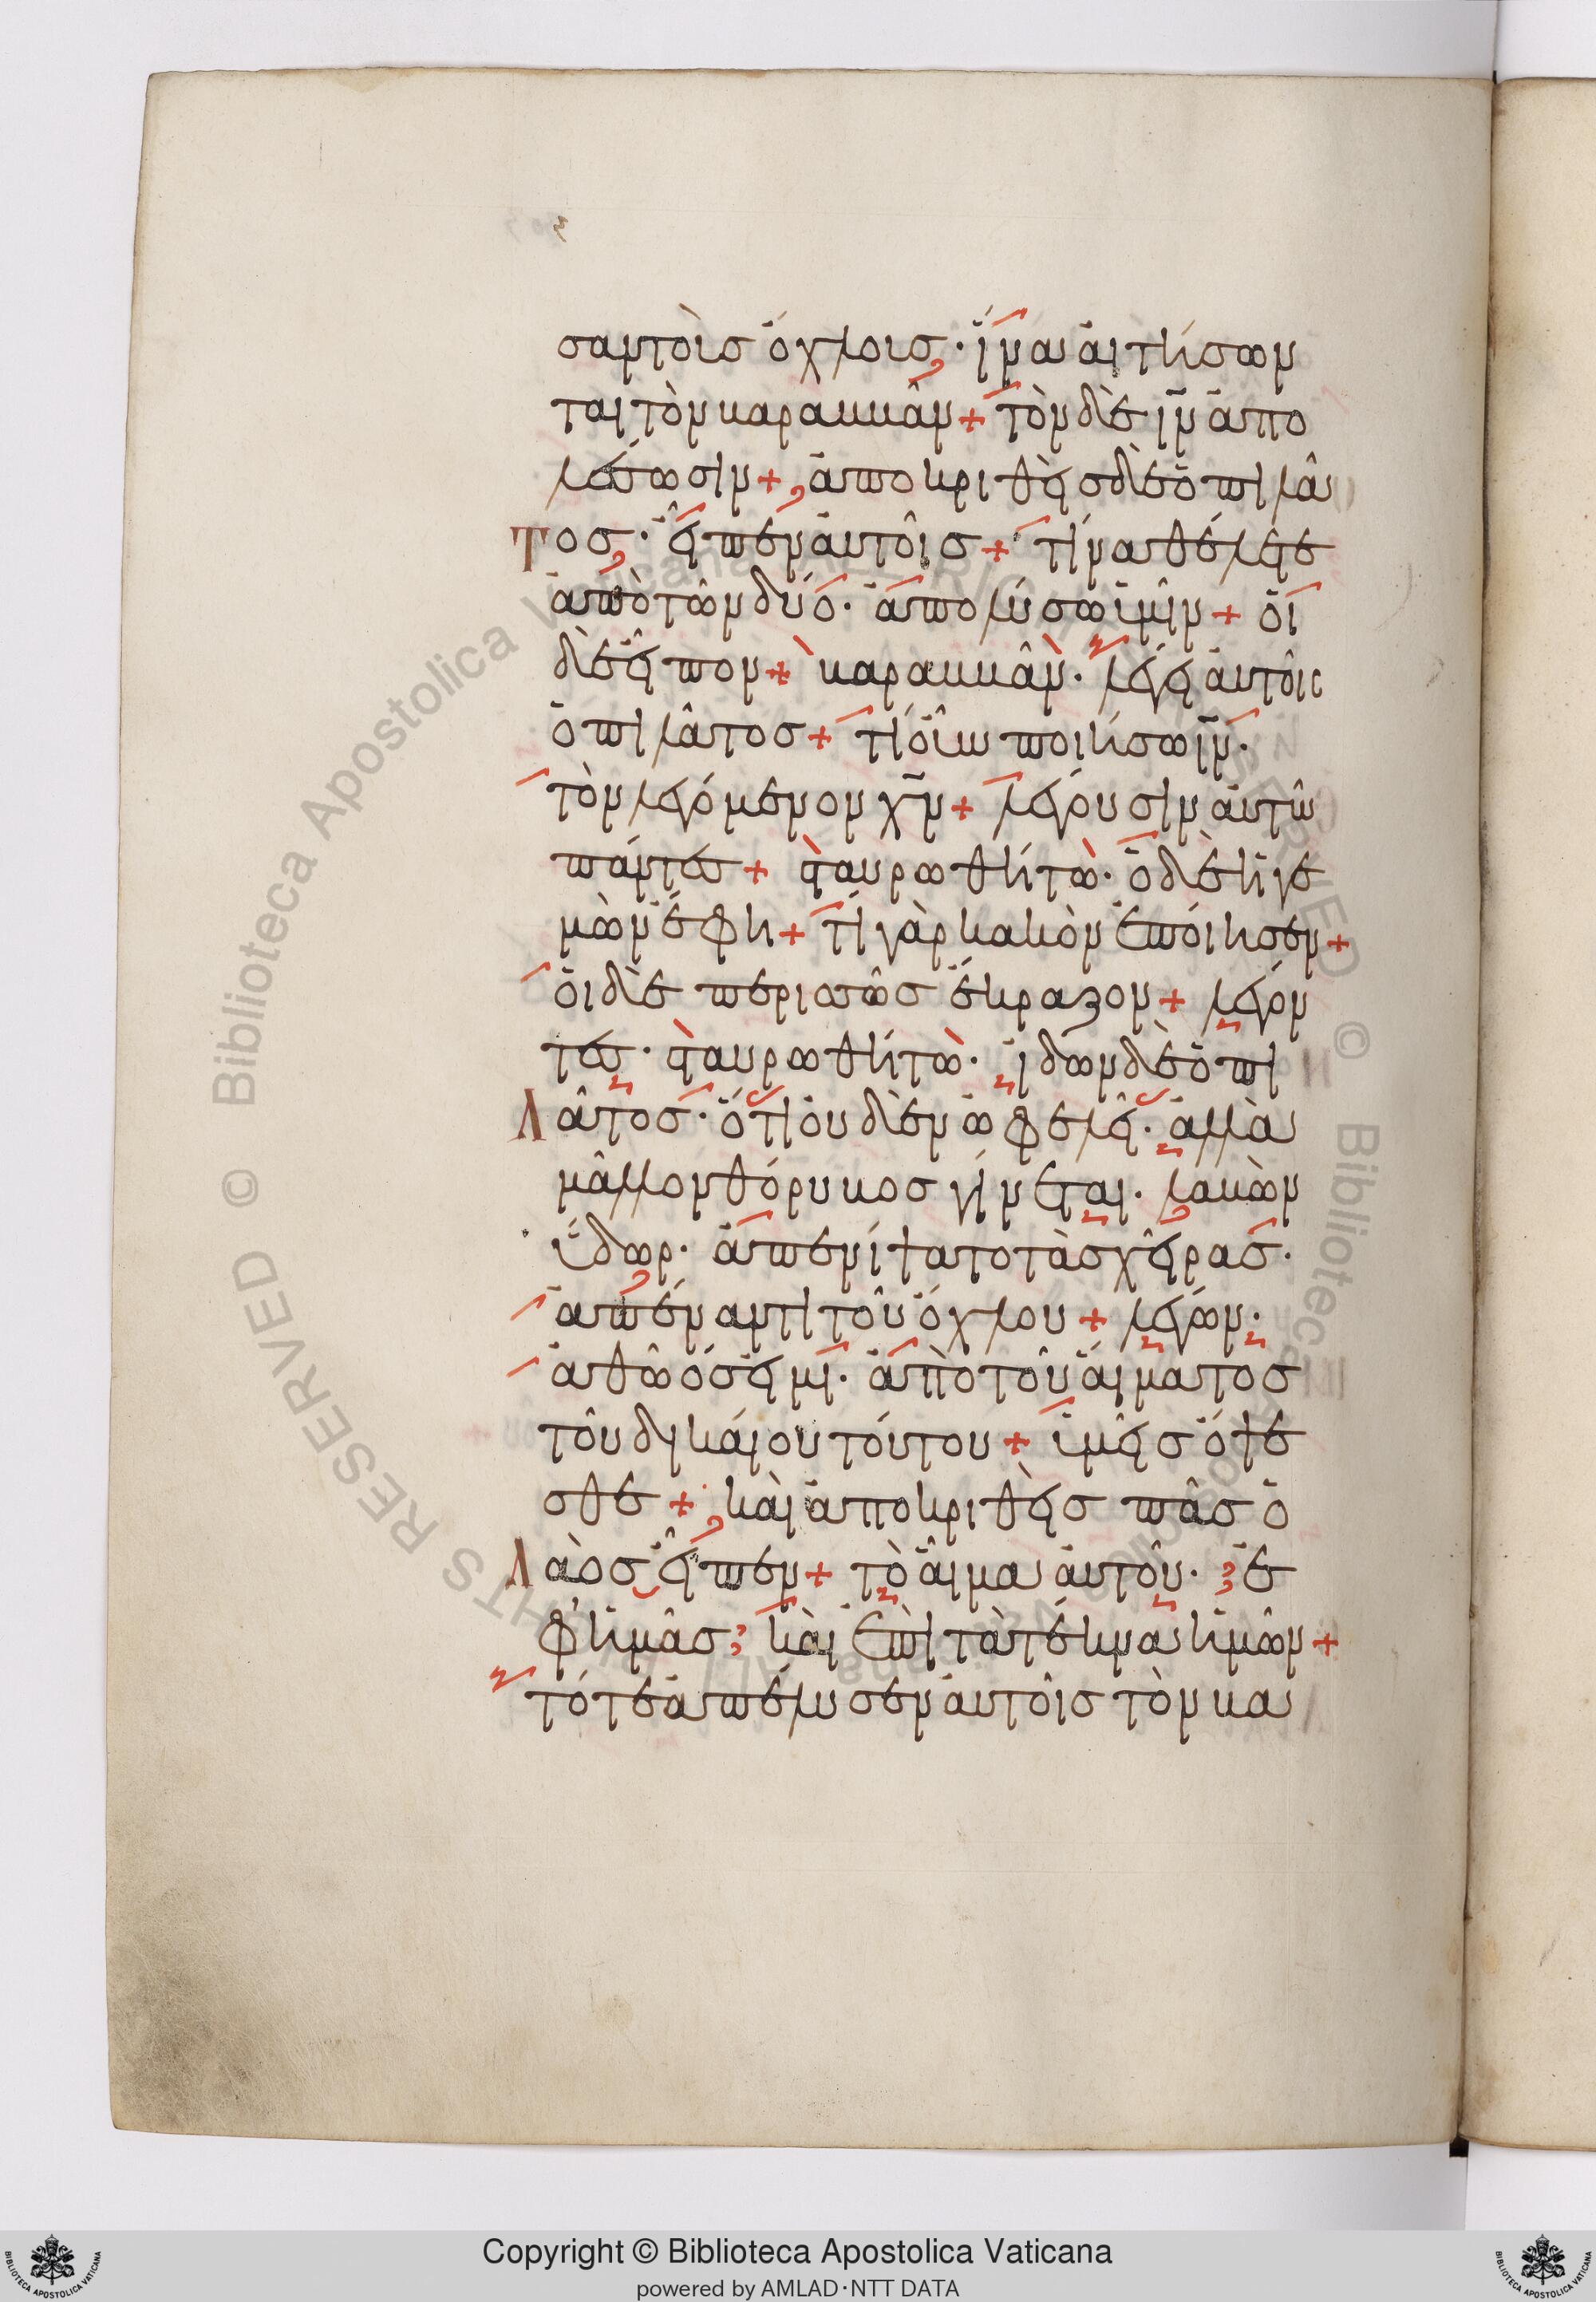 σαν τοὶσ ὄχλοισ· ἵνα ἀιτήσων
ται τὸν βαραββᾶν + τὸν δὲ ιν̄ ἀπο
λέσωσιν + ἀποκριθεὶσ δὲ ὁ πιλᾶ
τοσ· εἶπεν ἀυτοῖσ + τίνα θέλετε
ἀπὸ τῶν δύο· ἀπολύσω ὑμῖν + ὁι
δὲ εἶπον + βαραββᾶν· λέγει ἀυτοῖς
ὁ πιλᾶτοσ + τί ὀῦν ποιήσω ιν̄·
τὸν λεγόμενον χν̄ + λέγουσιν ἀυτῶ
πάντεσ + σταυρωθήτω· ὁ δὲ ἡγε
μὼν ἔφη + τί γὰρ κακὸν ἐποίησεν +
ὁι δὲ περισσῶσ ἔκραζον + λέγον
τεσ· σταυρωθήτω· ἰδὼν δὲ ὁ πι
λᾶτοσ· ὅτι ὀυδὲν ὠφελεῖ· ἀλλὰ
μᾶλλον θόρυβοσ γίνεται· λαβὼν
ὕδωρ· ἀπενίψατο τὰσ χεῖρασ·
ἀπέναντι τοῦ ὄχλου + λέγων·
ἀθῶόσ εἰμι· ἀπὸ τοῦ ἅιματοσ
τοῦ δικάιου τόυτου + ὑμεῖσ ὄψε
σθε + κὰι ἀποκριθεὶσ πᾶσ ὁ
λαὸσ εἶπεν + τὸ ἅιμα ἀυτοῦ· ἐ
φ' ἡμᾶσ κὰι ἐπὶ τὰ τέκνα ἡμῶν +
τότε ἀπέλυσεν ἀυτοῖσ τὸν βα
Copyright © Biblioteca Apostolica Vaticana
powered by AMLAD·NTT DATA